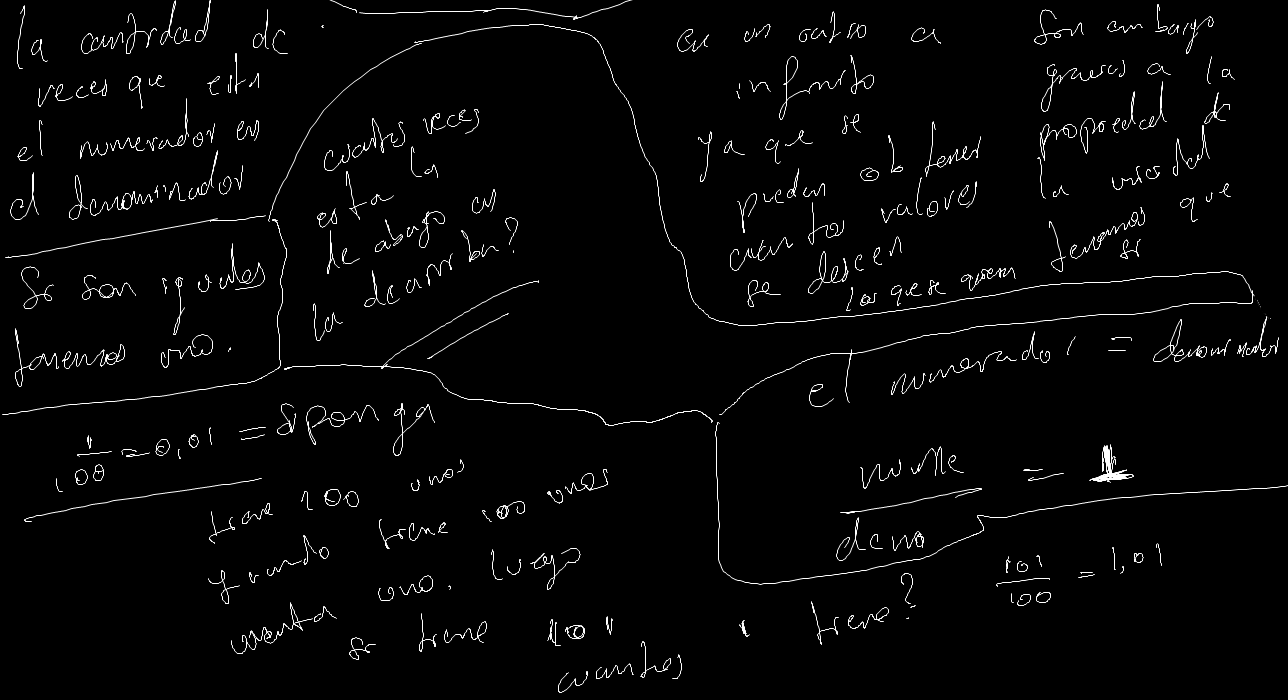 la cantidad de
veces que esta
el numerador en
el denominador
Si son iguales
tenemos uno.
cuantas veces
esta la
de abajo en
la de arriba?
en un ratio a
infinito
ya que se
pueden obtener
cuantos valores
se deseen
los que se quieran
Sin embargo
gracias a la
propiedad de
la unicidad
tenemos que
si
el numerador = denominador
nume / deno = 1
1/100 = 0,01 = Suponga
tiene 100 unos
y cuando tiene 100 unos
cuenta uno. luego
si tiene 101
cuantos tiene? 101/100 = 1,01